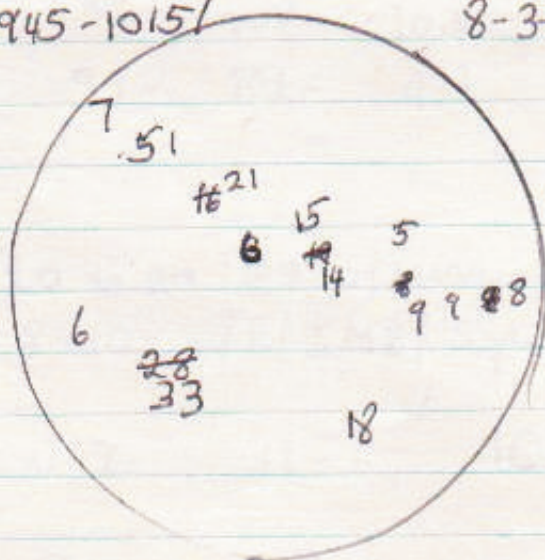 945-1015
8-3-
7
51
16 21
15
6
5
14
8
9 9 8
6
28
33
18